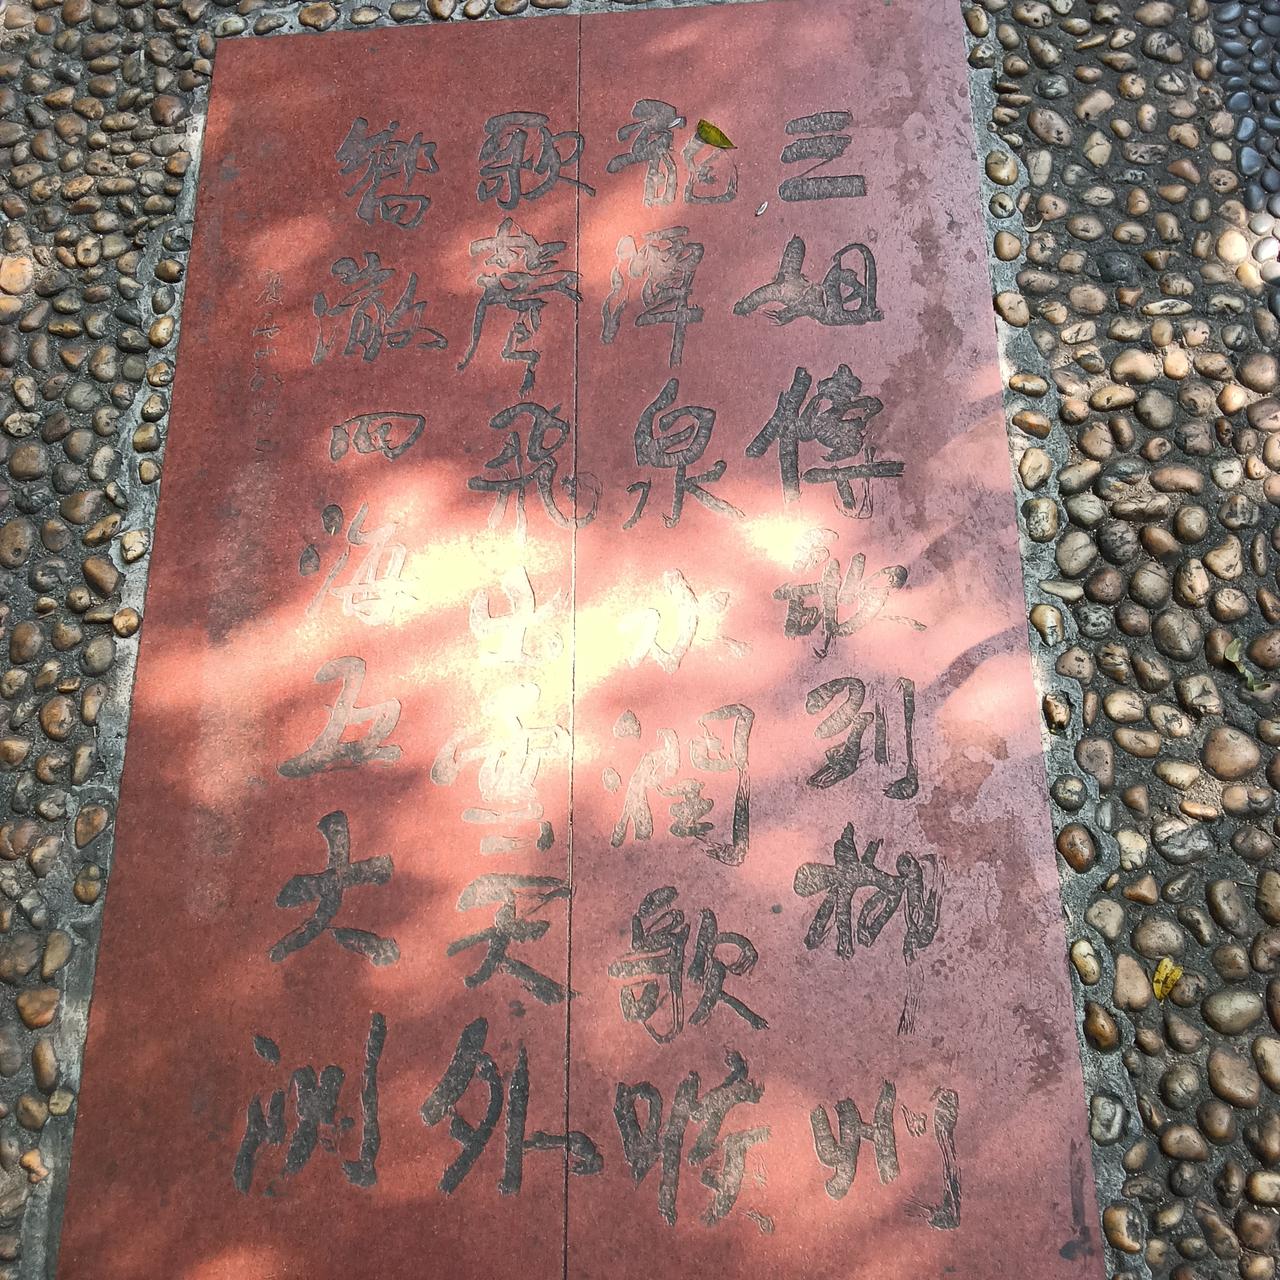 三姐傳歌到柳州
龍潭泉水潤歌喉
歌聲飛出雲天外
響澈四海五大洲